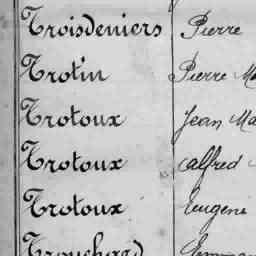 Troisdeniers Pierre
Trotin Pierre Ma
Trotoux Jean Ma
Trotoux Alfred
Trotoux Eugène
Trouchard